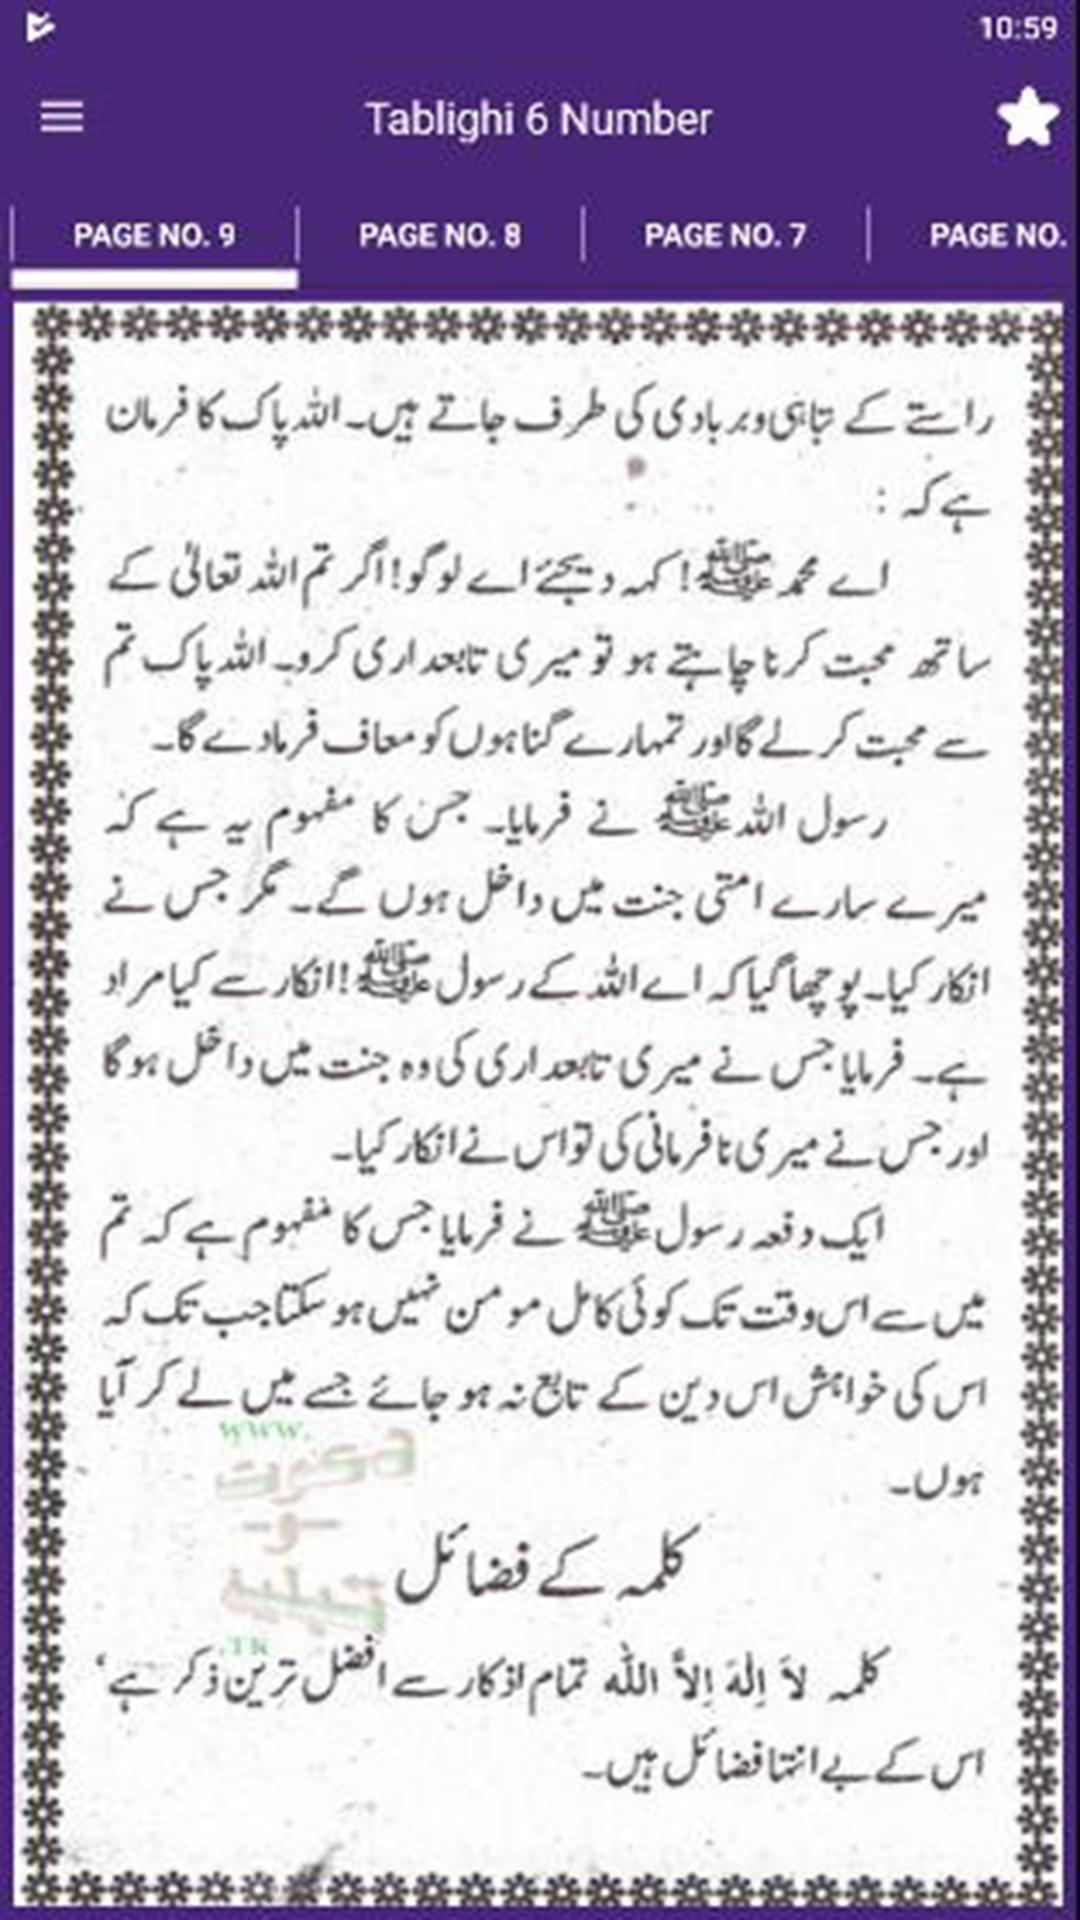 10:59
Tablighi 6 Number
PAGE NO. 9
PAGE NO. 8
PAGE NO. 7
PAGE NO.
راستے کے تباہی وبربادی کی طرف جاتے ہیں۔ اللہ پاک کا فرمان
ہے کہ :
اے محمد ﷺ! کہہ دیجئے اے لوگو! اگر تم اللہ تعالیٰ کے
ساتھ محبت کرنا چاہتے ہو تو میری تابعداری کرو۔ اللہ پاک تم
سے محبت کرلے گا اور تمہارے گناہوں کو معاف فرمادے گا۔
رسول اللہ ﷺ نے فرمایا۔ جس کا مفہوم یہ ہے کہ
میرے سارے امتی جنت میں داخل ہوں گے۔ مگر جس نے
انکار کیا۔ پوچھا گیا کہ اے اللہ کے رسول ﷺ! انکار سے کیا مراد
ہے۔ فرمایا جس نے میری تابعداری کی وہ جنت میں داخل ہوگا
اور جس نے میری نافرمانی کی تو اس نے انکار کیا۔
ایک دفعہ رسول ﷺ نے فرمایا جس کا مفہوم ہے کہ تم
میں سے اس وقت تک کوئی کامل مومن نہیں ہو سکتا جب تک کہ
اس کی خواہش اس دین کے تابع نہ ہو جائے جسے میں لے کر آیا
ہوں۔
www.
دعوت
-و-
تبلیغ
.TK
کلمہ کے فضائل
کلمہ لاَ اِلٰهَ اِلاَّ اللّٰه تمام اذکار سے افضل ترین ذکر ہے‘
اس کے بے انتہا فضائل ہیں۔